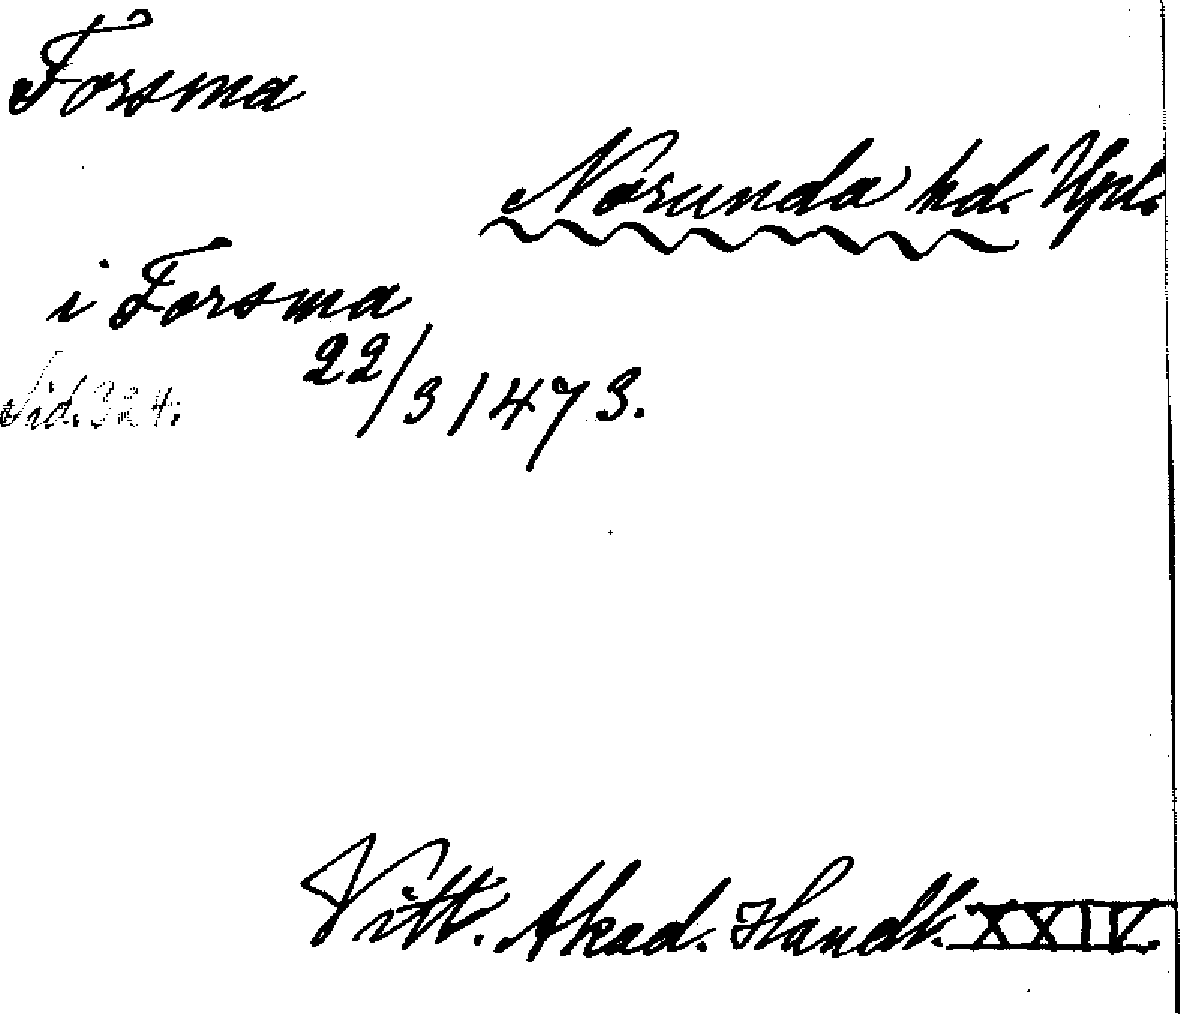 Forsma
Norunda hd. Upl.
i Forsma
22/3 1473.
Sid. 324.
Vitt. Akad. Handl. XXIV.